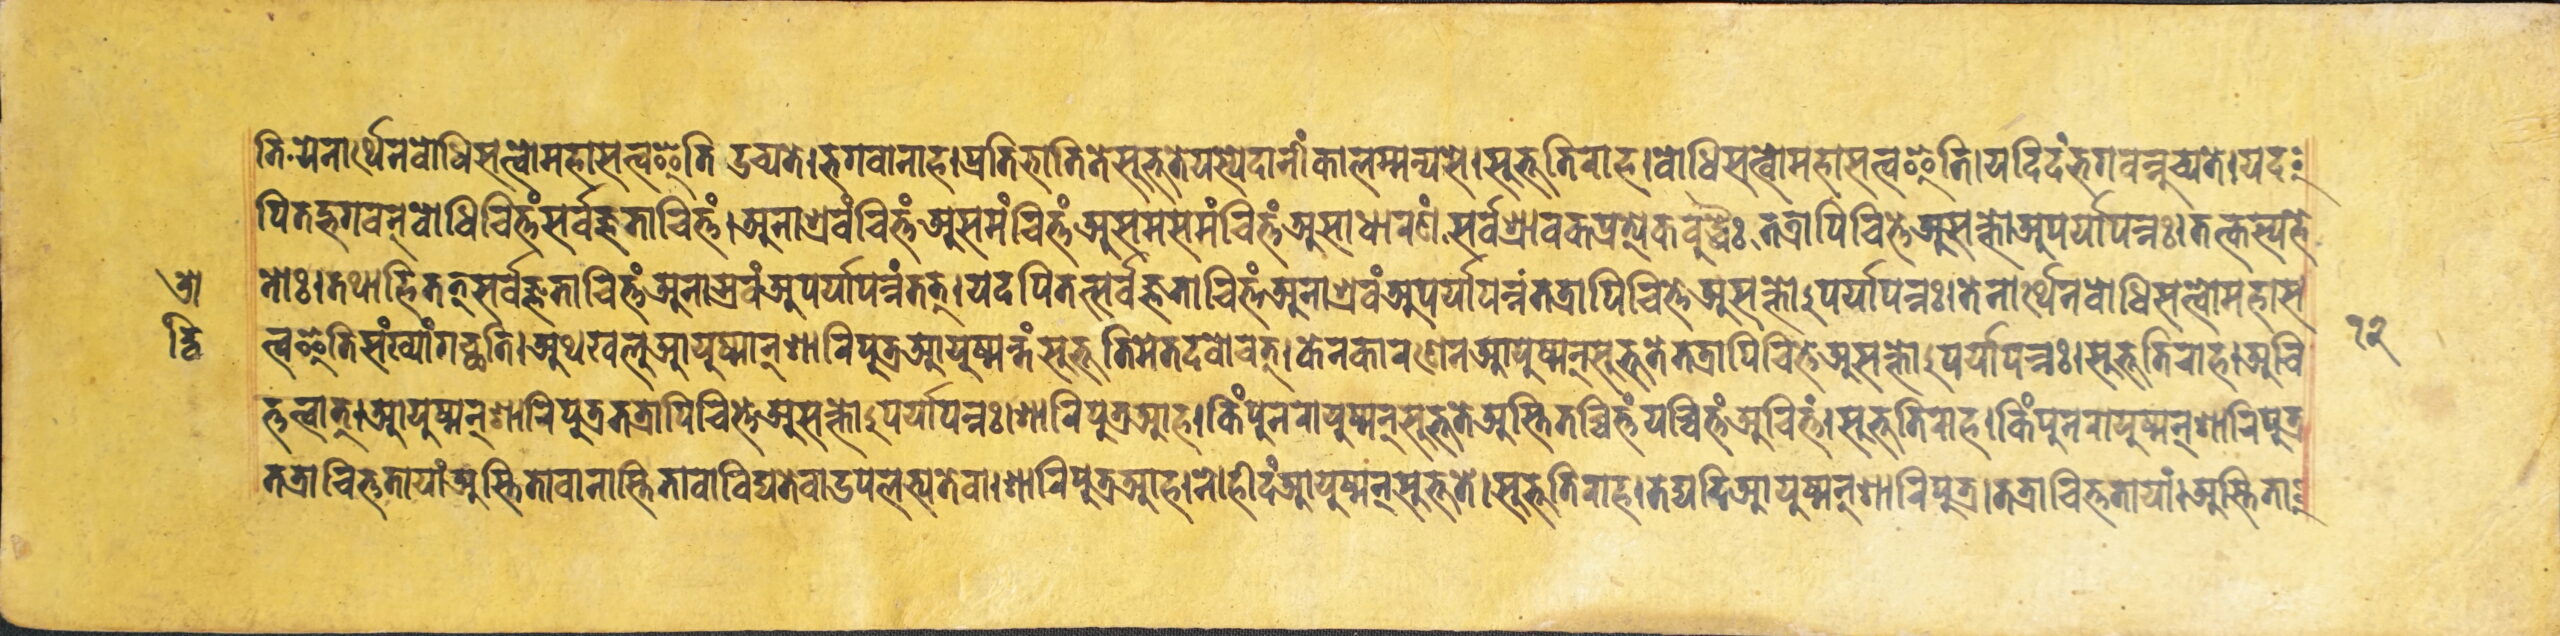 ति येनार्थेनबोधिसत्त्वोमहासत्त्वइति उच्यते।भगवानाह।प्रतिभातितेसुभूतेयस्येदानीं कालम्मन्यसे।सुभूतिराह।बोधिसत्त्वोमहासत्त्वइति।यदिदंभगवन्नुच्यते।यद
पितद्भगवन्बोधिचित्तंसर्वज्ञताचित्तं।अनाश्रवंचित्तंअसमंचित्तंअसमसमंचित्तंअसाधारणंसर्वश्रावकप्रत्येकबुद्धैः तत्रापिचित्तेअसक्तोअपर्यापन्नः।तत्कस्यहे
तोः।तथाहितत्सर्वज्ञताचित्तंअनास्रवंअपर्यापन्नंतत्।यदपितत्सर्वज्ञताचित्तंअनाश्रवंअपर्यापन्नंतत्रापिचित्तेअसक्तोऽपर्यापन्नः।तेनार्थेनबोधिसत्त्वोमहास
त्त्वइतिसंख्यांगच्छति।अथखलुआयुष्मान्शारिपुत्रआयुष्मन्तंसुभूतिमेतदवोचत्।केनकारणेनआयुष्मन्सुभूतेतत्रापिचित्तेअसक्तोऽपर्यापन्नः।सुभूतिराह।अचि
त्तत्वात्।आयुष्मन्शारिपुत्रतत्रापिचित्तेअसक्तोऽपर्यापन्नः।शारिपुत्रआह।किंपुनरायुष्मन्सुभूतेअस्तितच्चित्तंयच्चित्तंअचित्तं।सुभूतिराह।किंपुनरायुष्मन्शारिपुत्र
तत्राचित्ततायांअस्तितावानास्तितावाविद्यतेवाउपलभ्यतेवा।शारिपुत्रआह।नोहीदंआयुष्मन्सुभूते।सुभूतिराह।तेद्यदिआयुष्मन्शारिपुत्र।तत्राचित्ततायां।अस्तिता
द्वि
१२